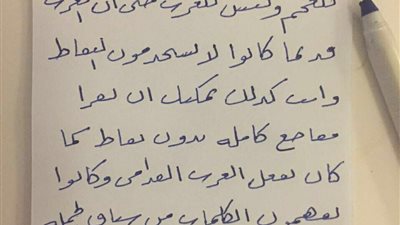 للعجم وليس للعرب حتى ان العرب
قديما كانوا لا يستخدمون النقاط
وانت كذلك يمكنك ان تقرا
مقاطع كامله بدون نقاط كما
كان يفعل العرب القدامى وكانوا
يفهمون الكلمات من سياق